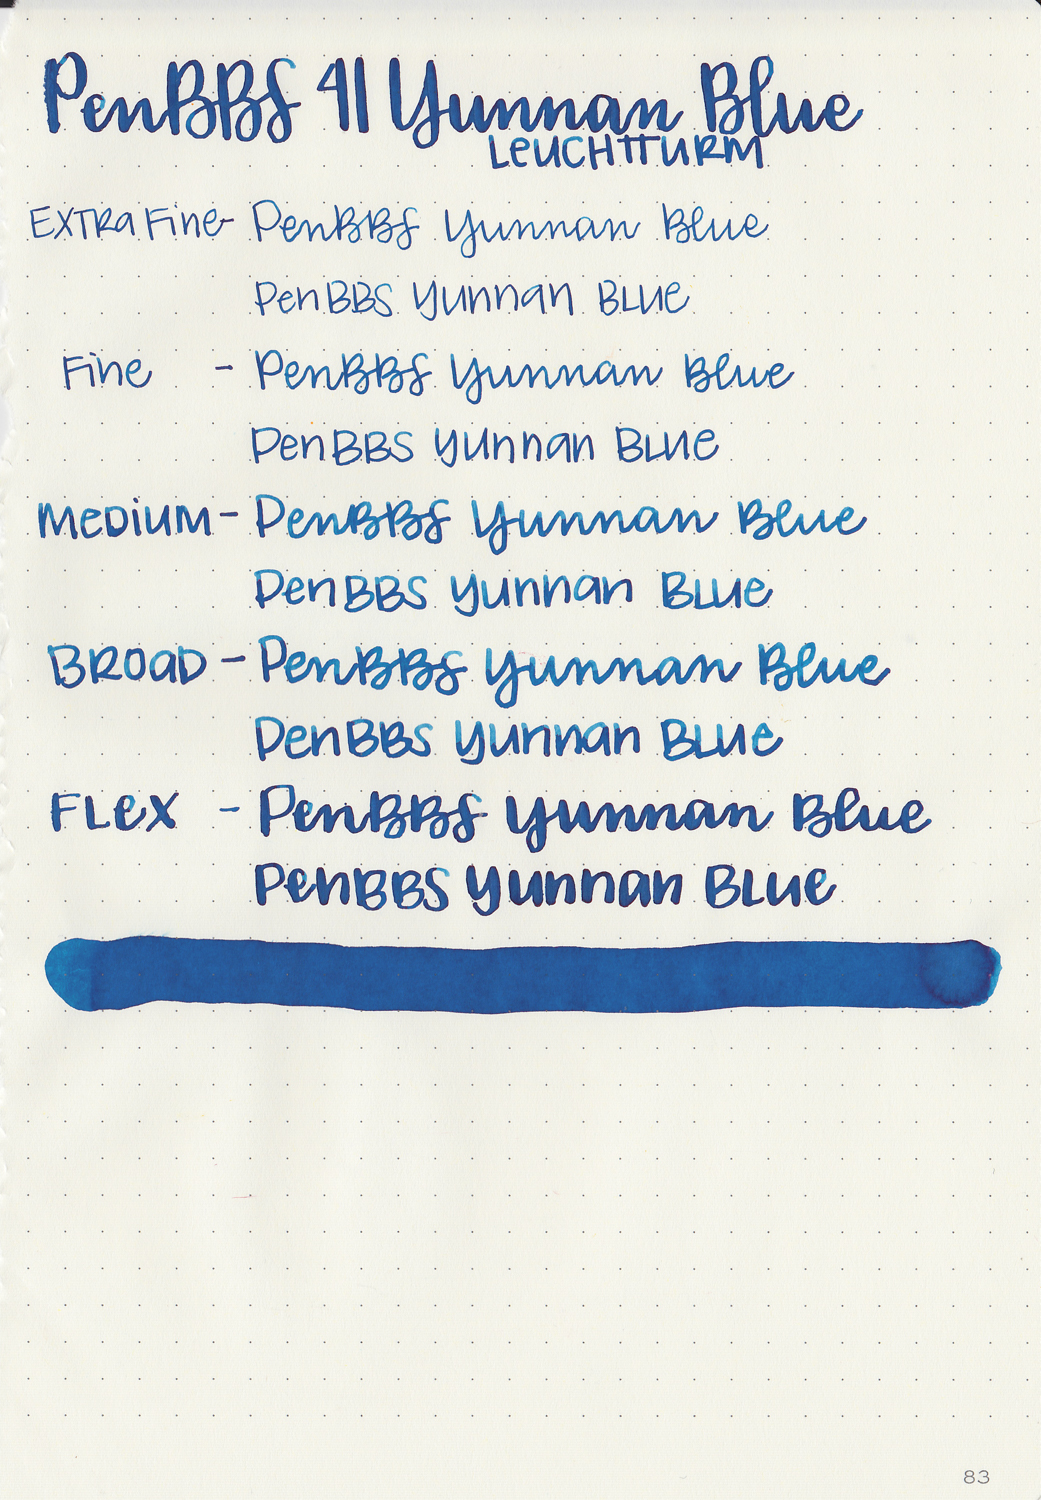 PenBBS 41 Yunnan Blue
LEUCHTTURM
Extra Fine - PenBBS Yunnan Blue
PenBBS Yunnan Blue
Fine - PenBBS Yunnan Blue
PenBBS Yunnan Blue
Medium - PenBBS Yunnan Blue
PenBBS Yunnan Blue
Broad - PenBBS Yunnan Blue
PenBBS Yunnan Blue
Flex - PenBBS Yunnan Blue
PenBBS Yunnan Blue
83